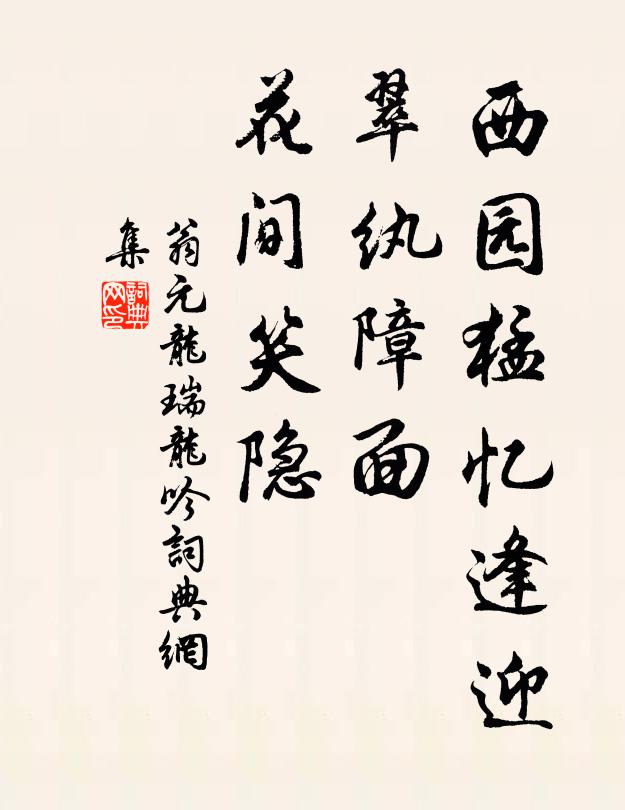 西园猛忆逢迎
翠纨障面
花间笑隐
翁元龍瑞龍吟詞典網
集
詞典网印